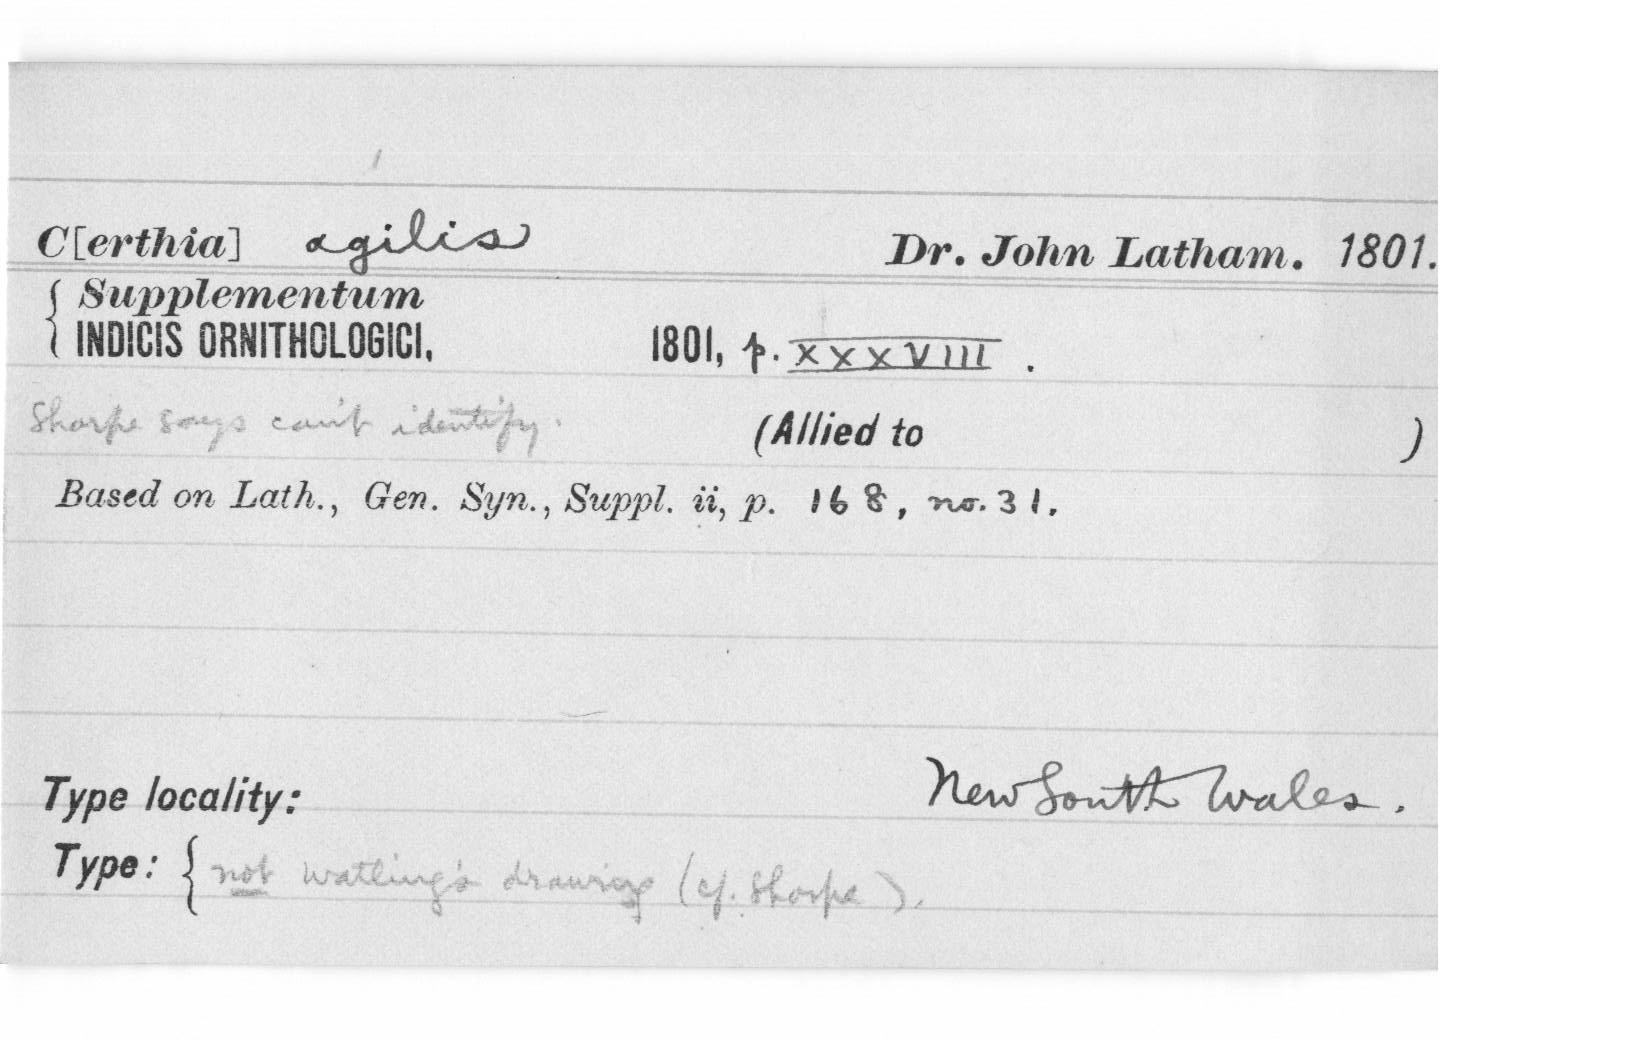 C[erthia] agilis Dr. John Latham. 1801.
{ Supplementum
INDICIS ORNITHOLOGICI, 1801, p. XXXVIII.
Sharpe says can't identify. (Allied to )
Based on Lath., Gen. Syn., Suppl. ii, p. 168, no. 31.
Type locality: New South Wales.
Type: { not Watling's drawing (cf. Sharpe).